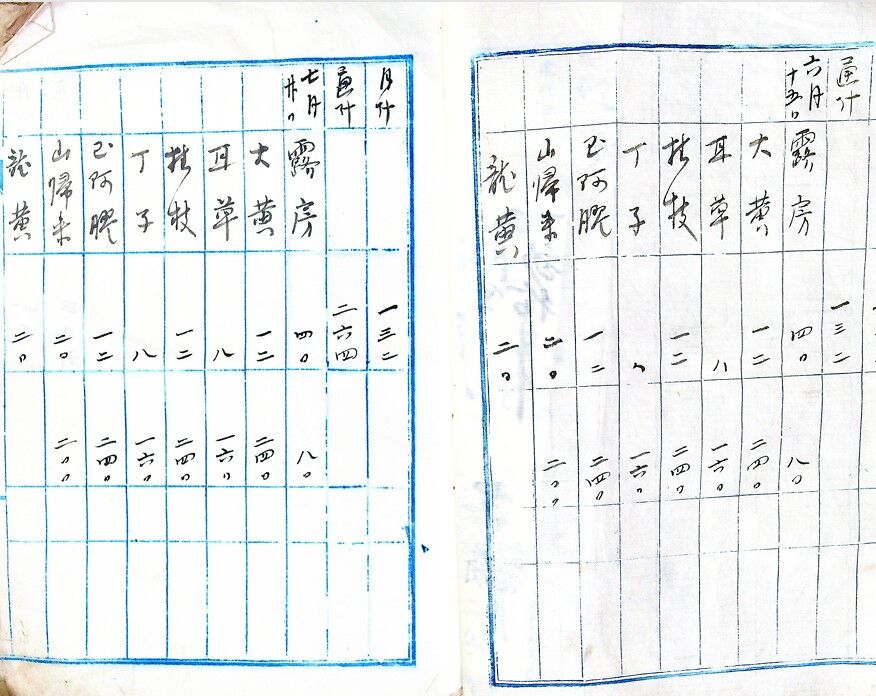 通計 一三二
六月十五日 露房 四〇 八〇
大黄 一二 二四〇
耳草 八 一六〇
桂枝 一二 二四〇
丁子 八 一六〇
玉阿膠 一二 二四〇
山帰来 二〇 二〇〇
龍黄 二〇
月計 一三二
通計 二六四
七月廿日 露房 四〇 八〇
大黄 一二 二四〇
耳草 八 一六〇
桂枝 一二 二四〇
丁子 八 一六〇
玉阿膠 一二 二四〇
山帰来 二〇 二〇〇
龍黄 二〇